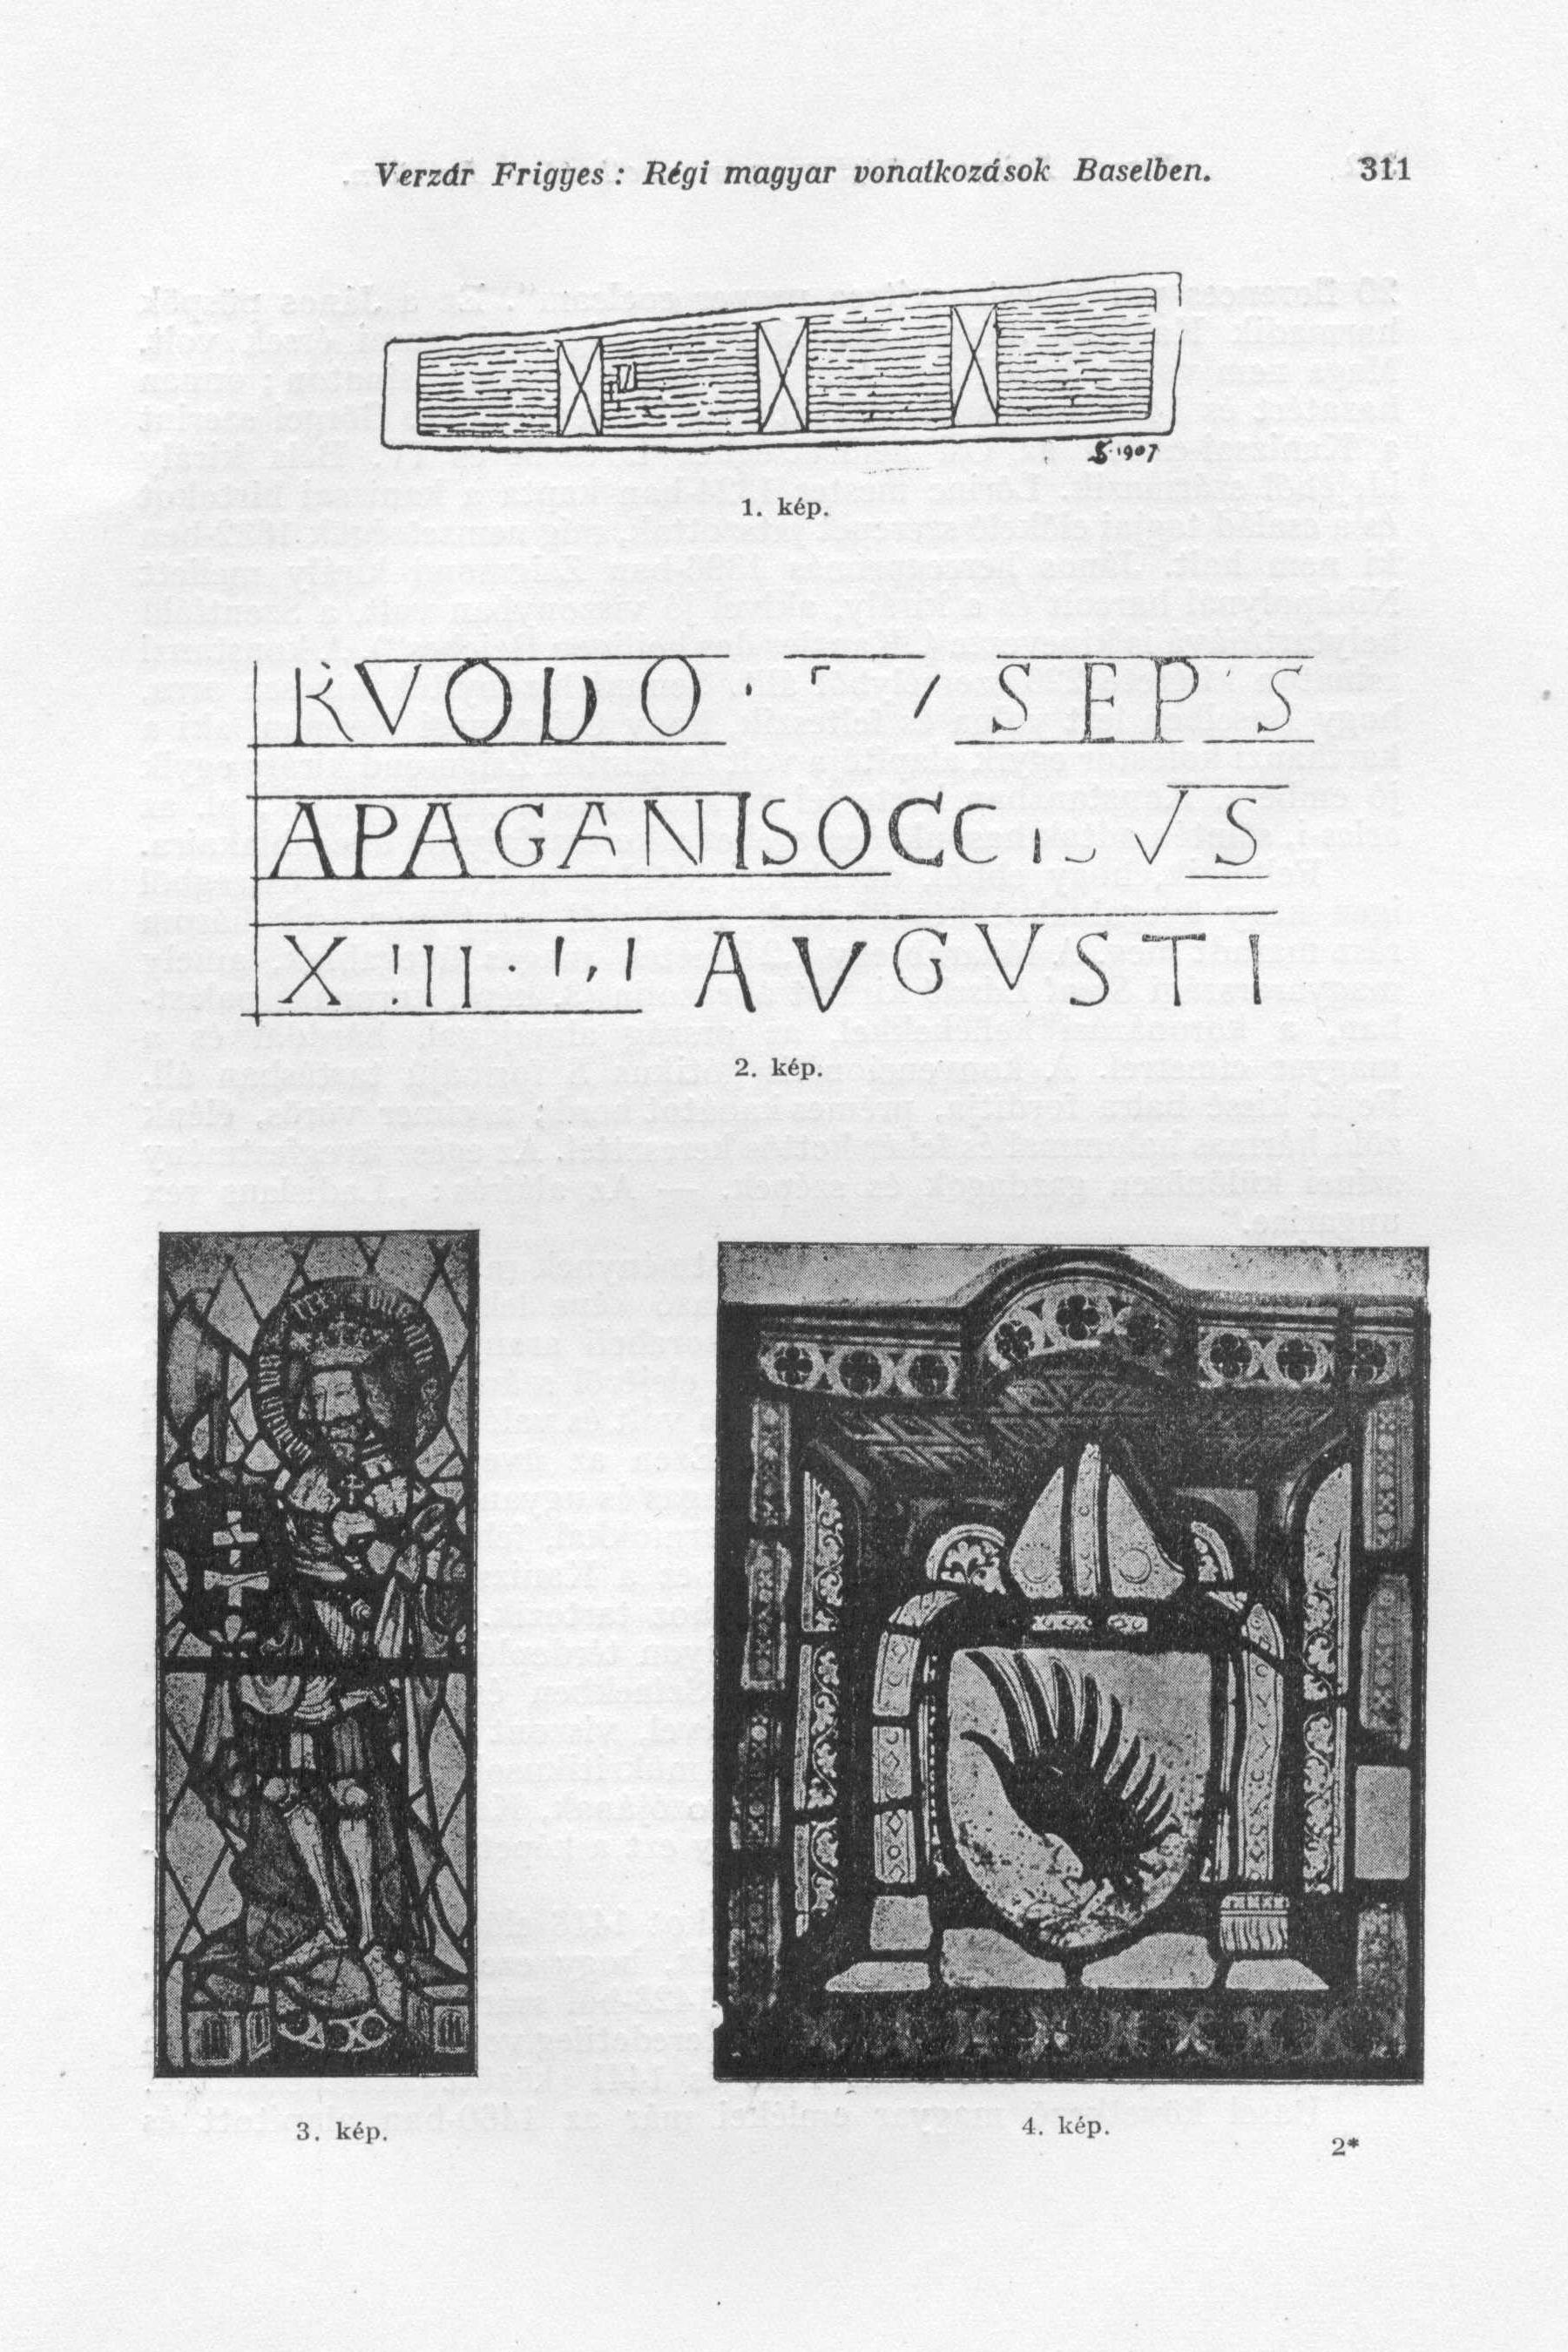 Verzár Frigyes: Régi magyar vonatkozások Baselben. 311
S. 1907
1. kép.
RVODO · SEP'S
APAGANISOCCISVS
XIII · AVGVSTI
2. kép.
rex
3. kép.
4. kép.
2*